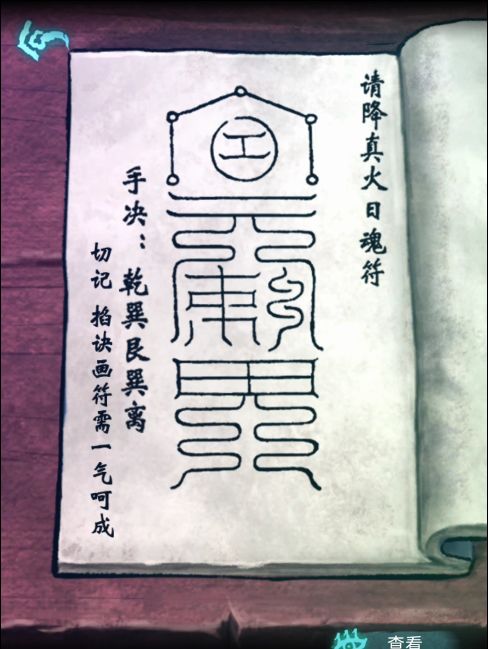 请降真火日魂符
手决：乾巽艮巽离
切记 掐诀画符需一气呵成
查看